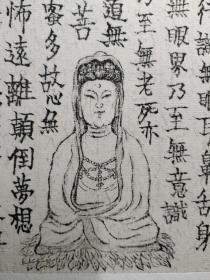 行識無眼耳鼻舌身
無眼界乃至無意識
乃至無老死亦
道無
菩
蜜多故心無
怖遠離顛倒夢想